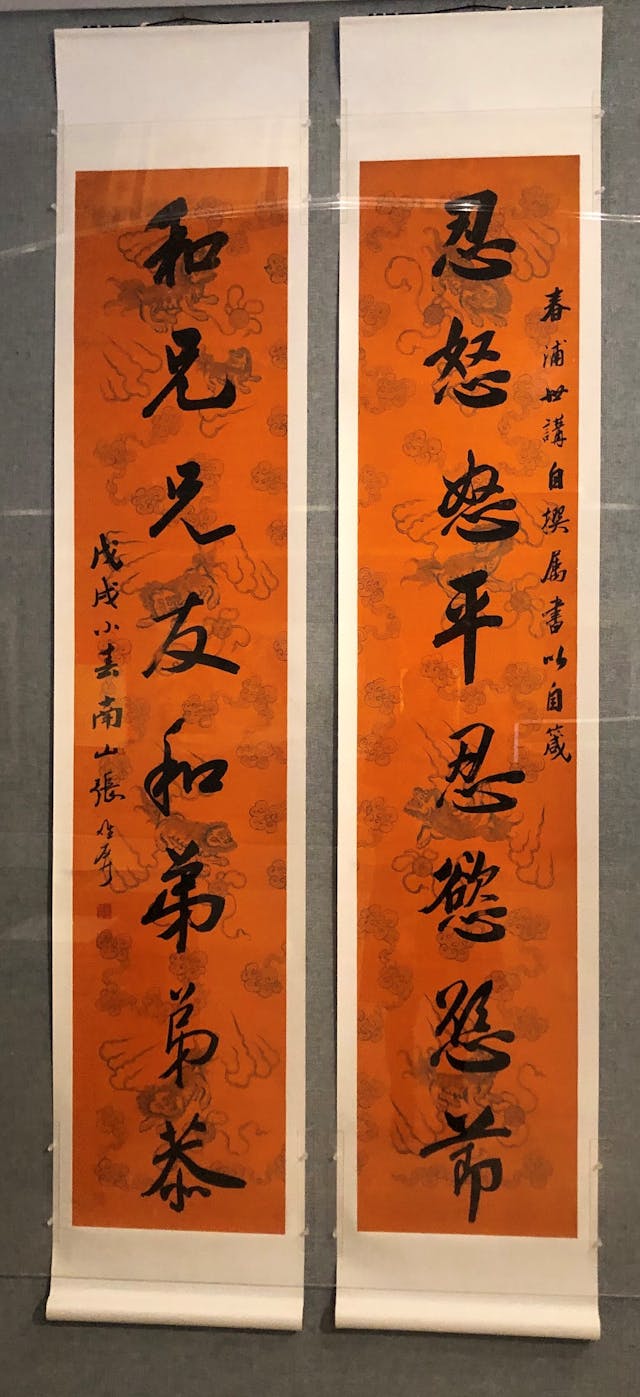 春浦世講自撰属書以自箴
忍怒怒平忍慾慾節
和兄兄友和弟弟恭
戊戌小春南山張維屏